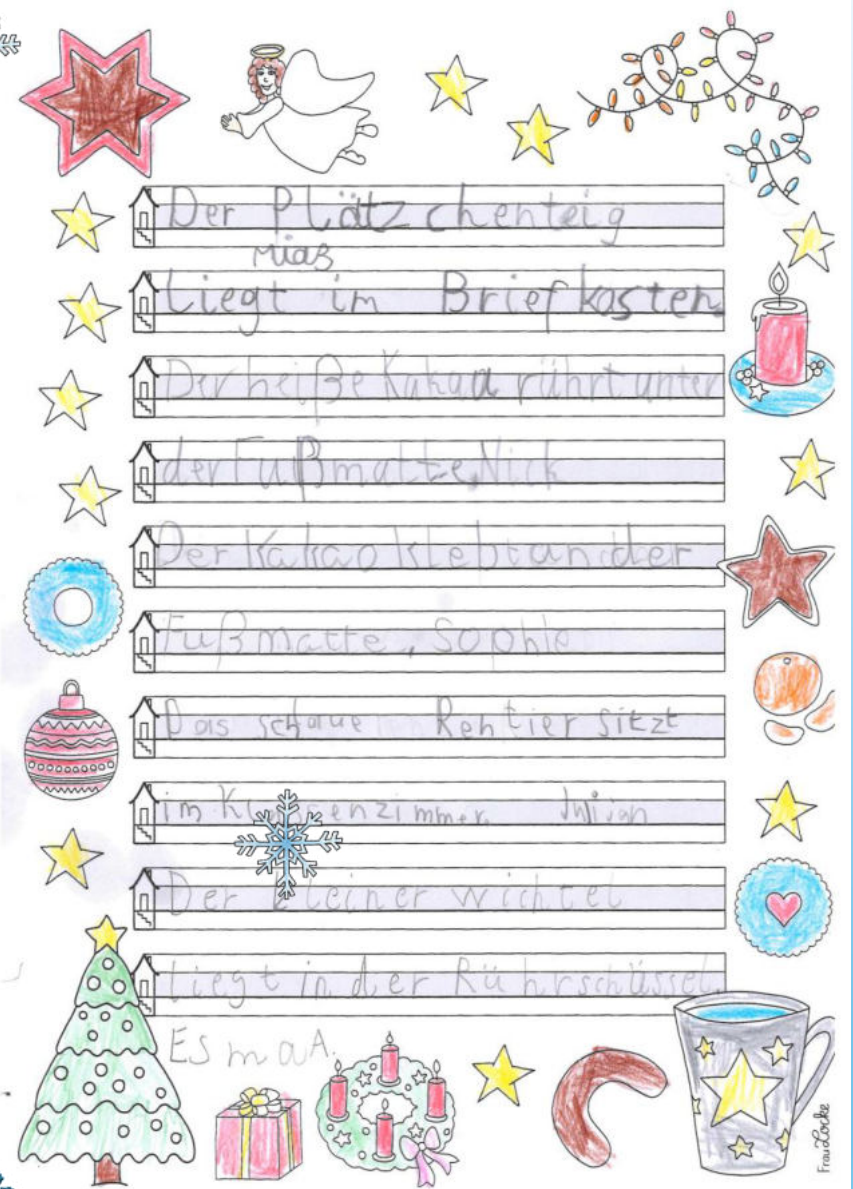 Der Plätzchenteig
liegt im Briefkasten
Der heiße Kakao rührt unter
der Fußmatte. Nick
Der Kakao klebt an der
Fußmatte. Sophie
Das schaue Rentier sitzt
im Klassenzimmer. Julian
Der kleiner wichtel
liegt in der Rührschüssel.
Esma A.
Frau Locke